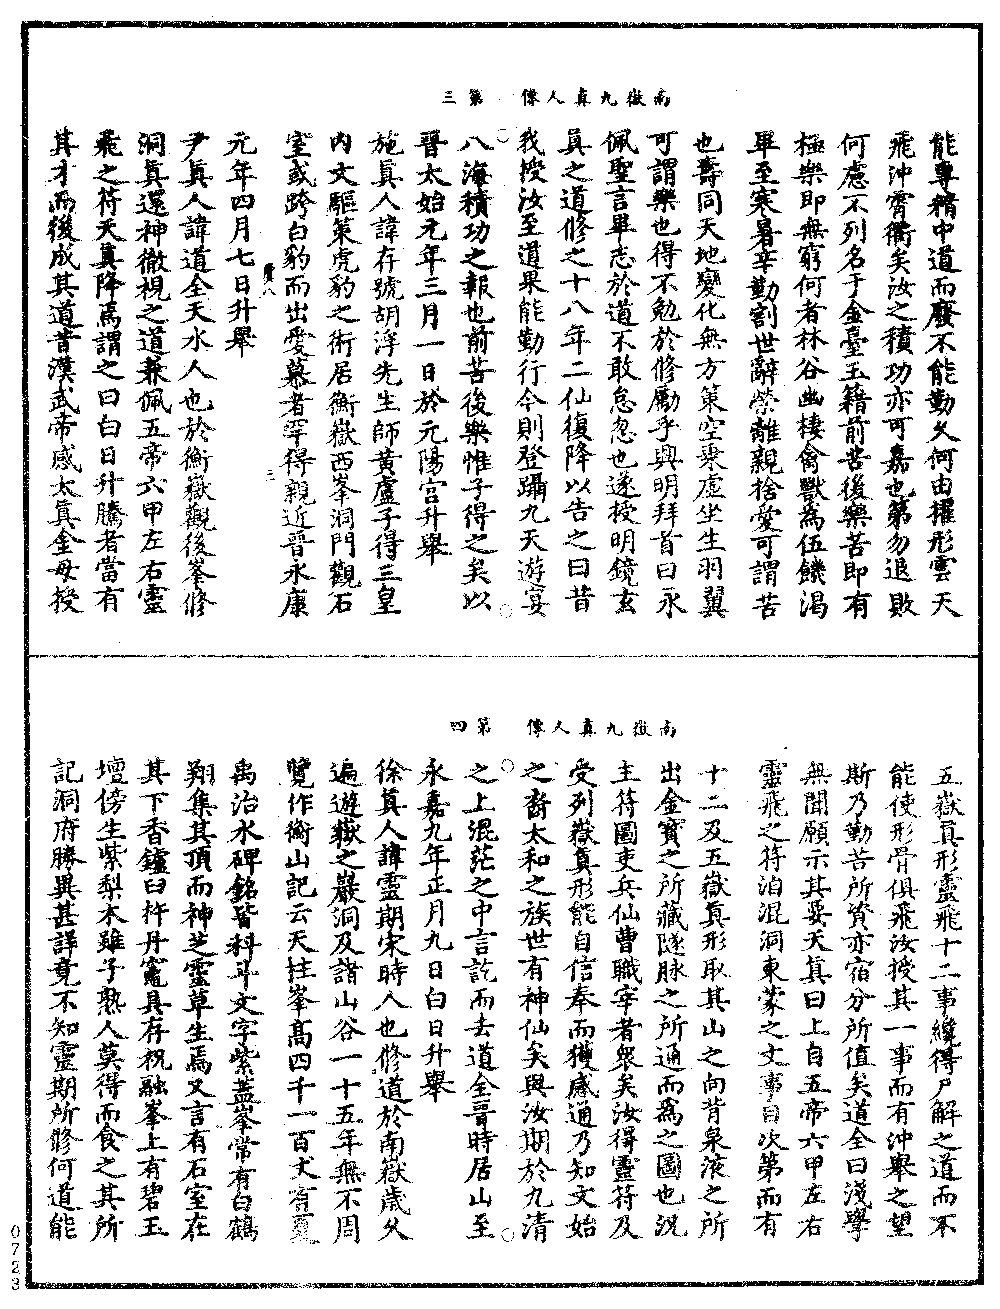 南嶽九真人傳　第三
能專精中道而廢不能勤久何由擢形雲天
飛沖霄衢矣汝之積功亦可嘉也第勿退敗
何慮不列名于金臺玉籍前苦後樂苦即有
極樂即無窮何者林谷幽棲禽獸為伍饑渴
畢至寒暑辛勤割世辭榮離親捨愛可謂苦
也壽同天地變化無方策空乘虛坐生羽翼
可謂樂也得不勉於修勵乎興明拜首曰永
佩聖言畢志於道不敢怠忽也遂授明鏡玄
真之道修之十八年二仙復降以告之曰昔
我授汝至道果能勤行今則登躡九天遊宴
八海積功之報也前苦後樂惟子得之矣以
晉太始元年三月一日於元陽宮升舉
施真人諱存號胡浮先生師黃盧子得三皇
內文驅策虎豹之術居衡嶽西峯洞門觀石
室或跨白豹而出愛慕者罕得親近晉永康
元年四月七日升舉
尹真人諱道全天水人也於衡嶽觀後峯修
洞真還神徹視之道兼佩五帝六甲左右靈
飛之符天真降焉謂之曰白日升騰者當有
其才而後成其道昔漢武帝感太真金母授
南嶽九真人傳　第四
五嶽真形靈飛十二事纔得尸解之道而不
能使形骨俱飛汝授其一事而有沖舉之望
斯乃勤苦所資亦宿分所值矣道全曰淺學
無聞願示其要天真曰上自五帝六甲左右
靈飛之符洎混洞東蒙之文事目次第而有
十二及五嶽真形取其山之向背泉液之所
出金寶之所藏隧脉之所通而為之圖也況
主符圖吏兵仙曹職宰者衆矣汝得靈符及
受列嶽真形能自信奉而獲感通乃知文始
之裔太和之族世有神仙矣與汝期於九清
之上混茫之中言訖而去道全晉時居山至
永嘉九年正月九日白日升舉
徐真人諱靈期宋時人也修道於南嶽歲久
遍遊嶽之巖洞及諸山谷一十五年無不周
覽作衡山記云天柱峯高四千一百丈有夏
禹治水碑銘皆科斗文字紫蓋峯常有白鶴
翔集其頂而神芝靈草生焉又言有石室在
其下香鑪臼杵丹竈具存祝融峯上有碧玉
壇傍生紫梨木雖子熟人莫得而食之其所
記洞府勝異甚詳竟不知靈期所修何道能
0723